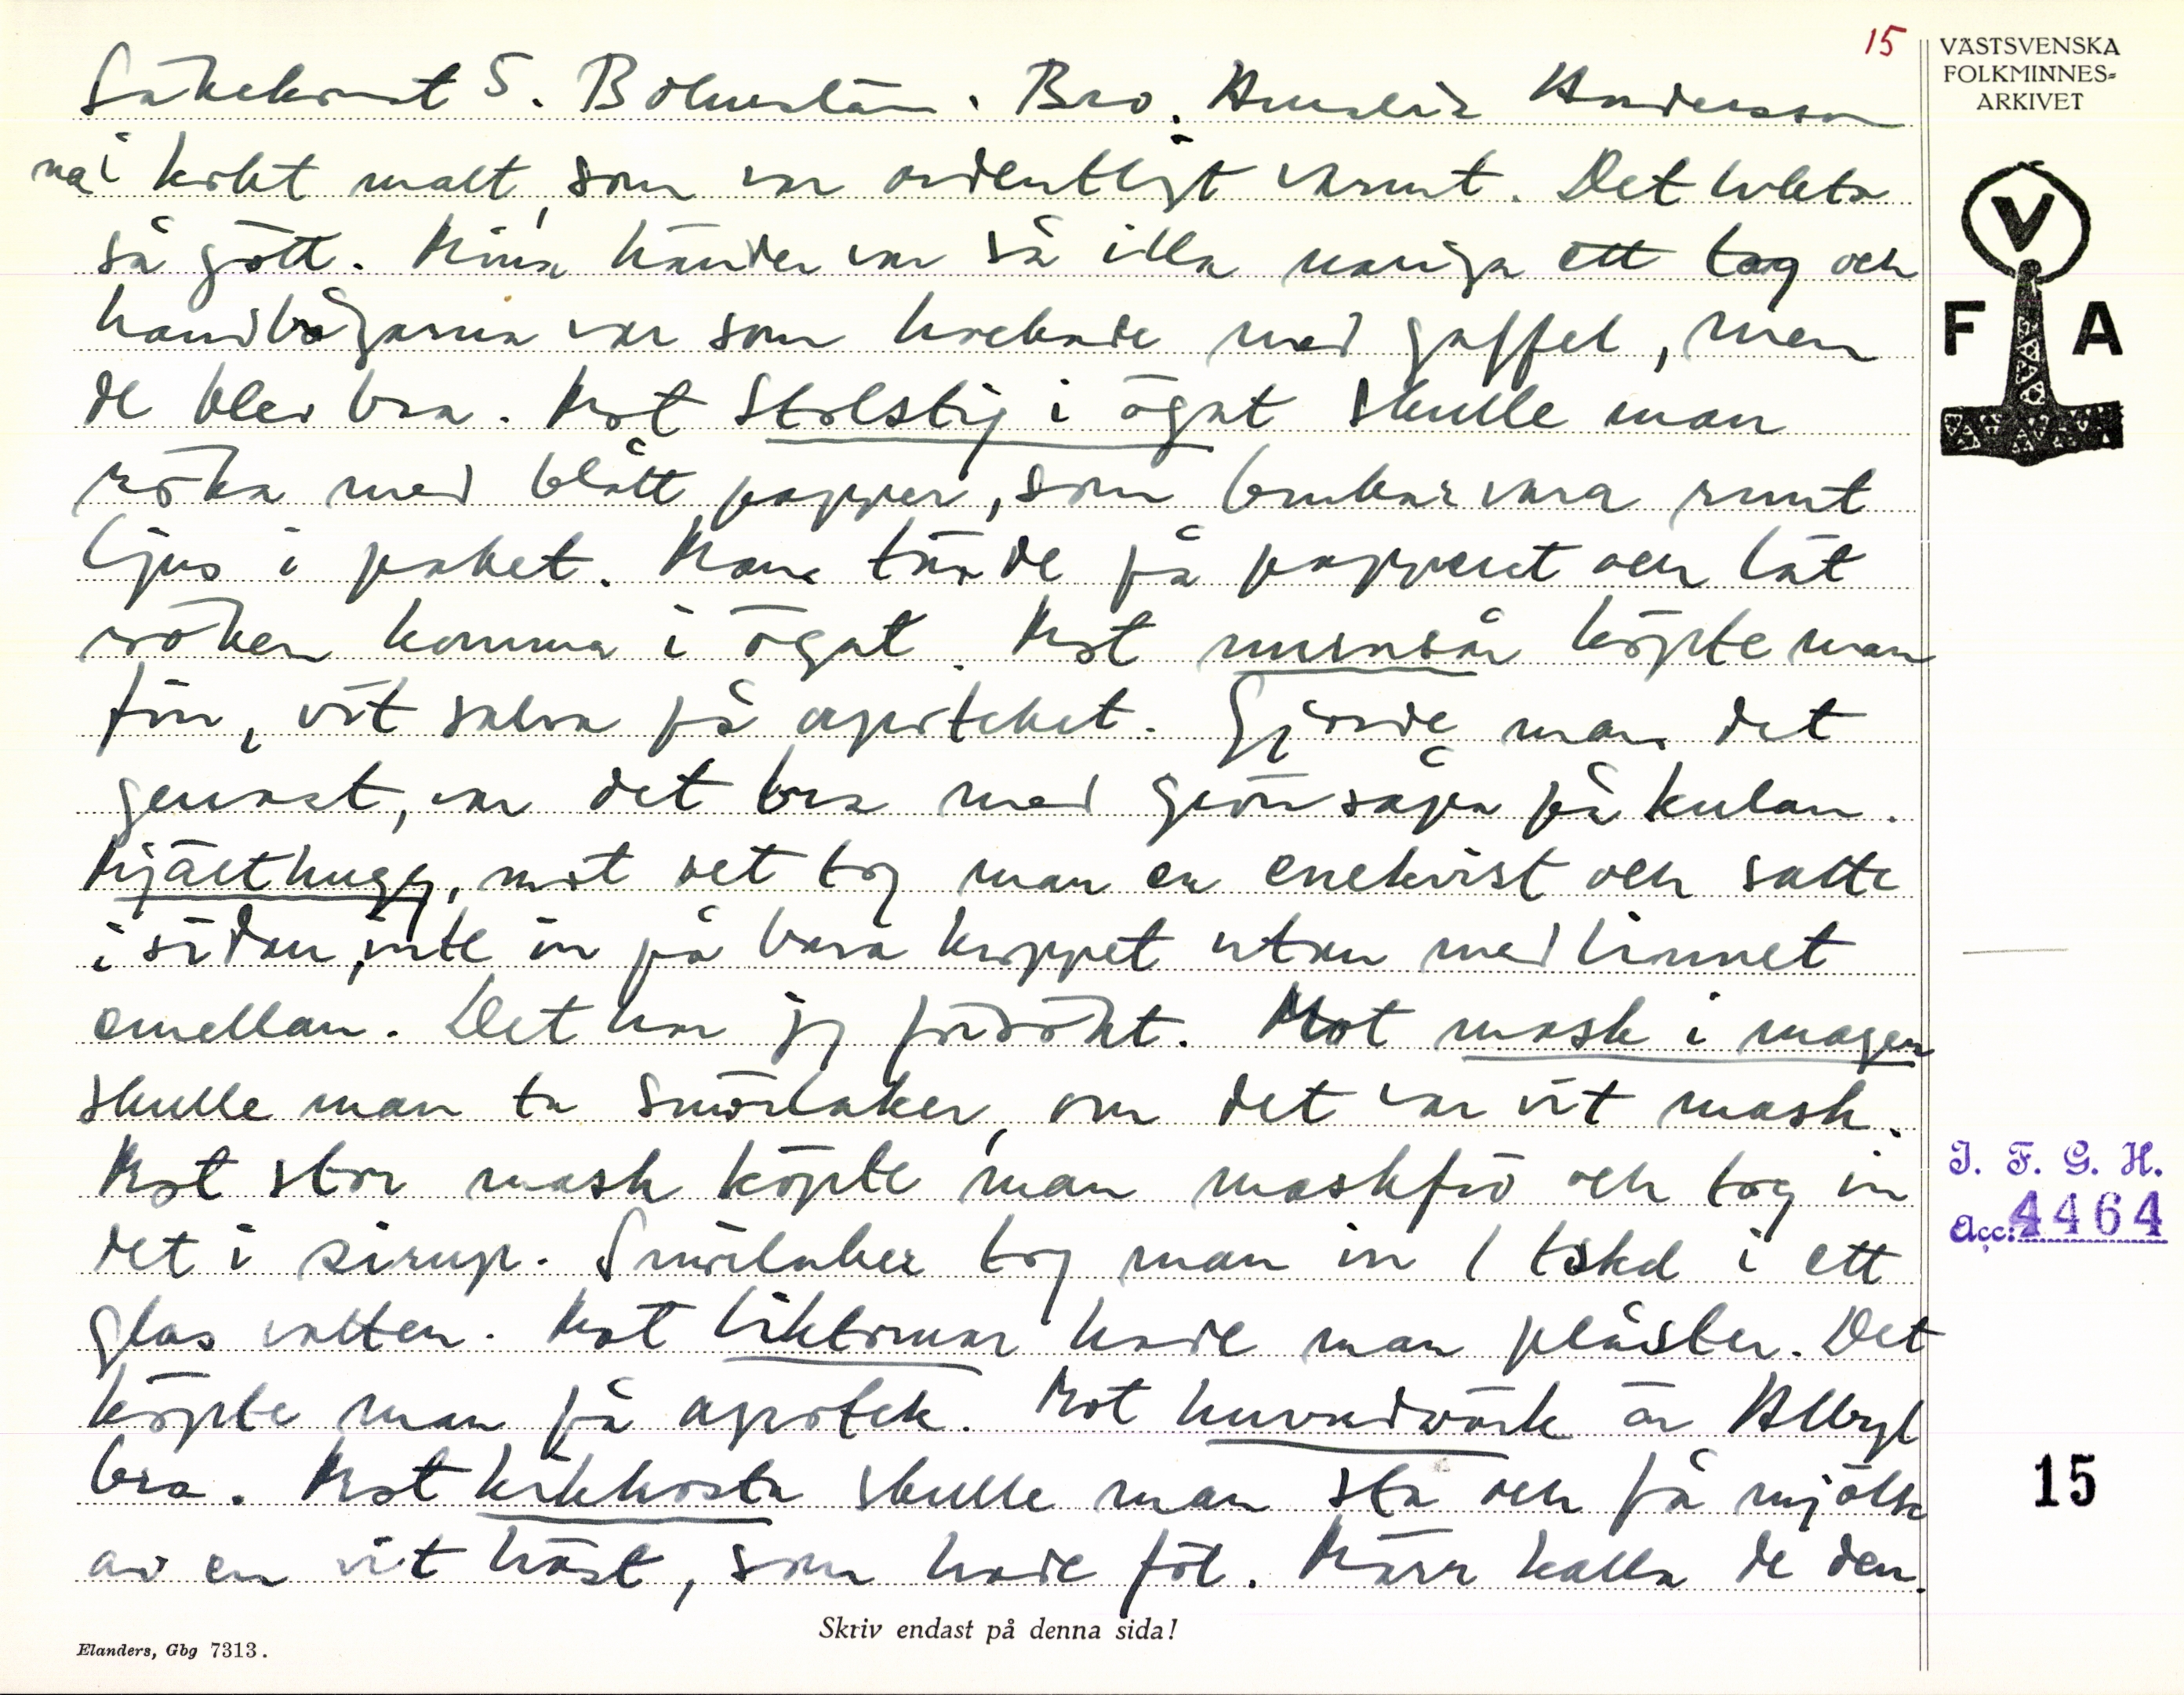 15
VÄSTSVENSKA
FOLKMINNES-
ARKIVET
V
F A
S. Bohuslän. Bro. Andersson
na i kokt malt, som var ordentligt varmt. Det lukta
så gött. Mina händer var så illa nariga ett tag och
handbågarna var som hackade med gaffel, men
de blev bra. Mot Stolstig i ögat skulle man
röka med blått papper, som brukar vara runt
ljus i paket. Man tände på papperet och lät
röken komma i ögat. Mot munsår köpte man
fin, vit salva på apoteket. Gjorde man det
genast, var det bra med grönsåpa på kulan.
Mjälthugg, mot det tog man en enekvist och satte
i sidan, inte in på bara kroppet utan med linnet
emellan. Det har jag försökt. Mot mask i magen
skulle man ta Smörlaker, om det var vit mask.
Mot stor mask köpte man maskfrö och tog in
det i sirup. Smörlaker tog man in 1 tskd i ett
glas vatten. Mot liktornar hade man plåster. Det
köpte man på apotek. Mot huvudvärk är Albyl
bra. Mot kikhosta skulle man sta och få mjölk
av en vit häst, som hade föl. Märr kalla de den.
I. F. G. H.
Acc: 4464
15
Skriv endast på denna sida!
Elanders, Gbg 7313.